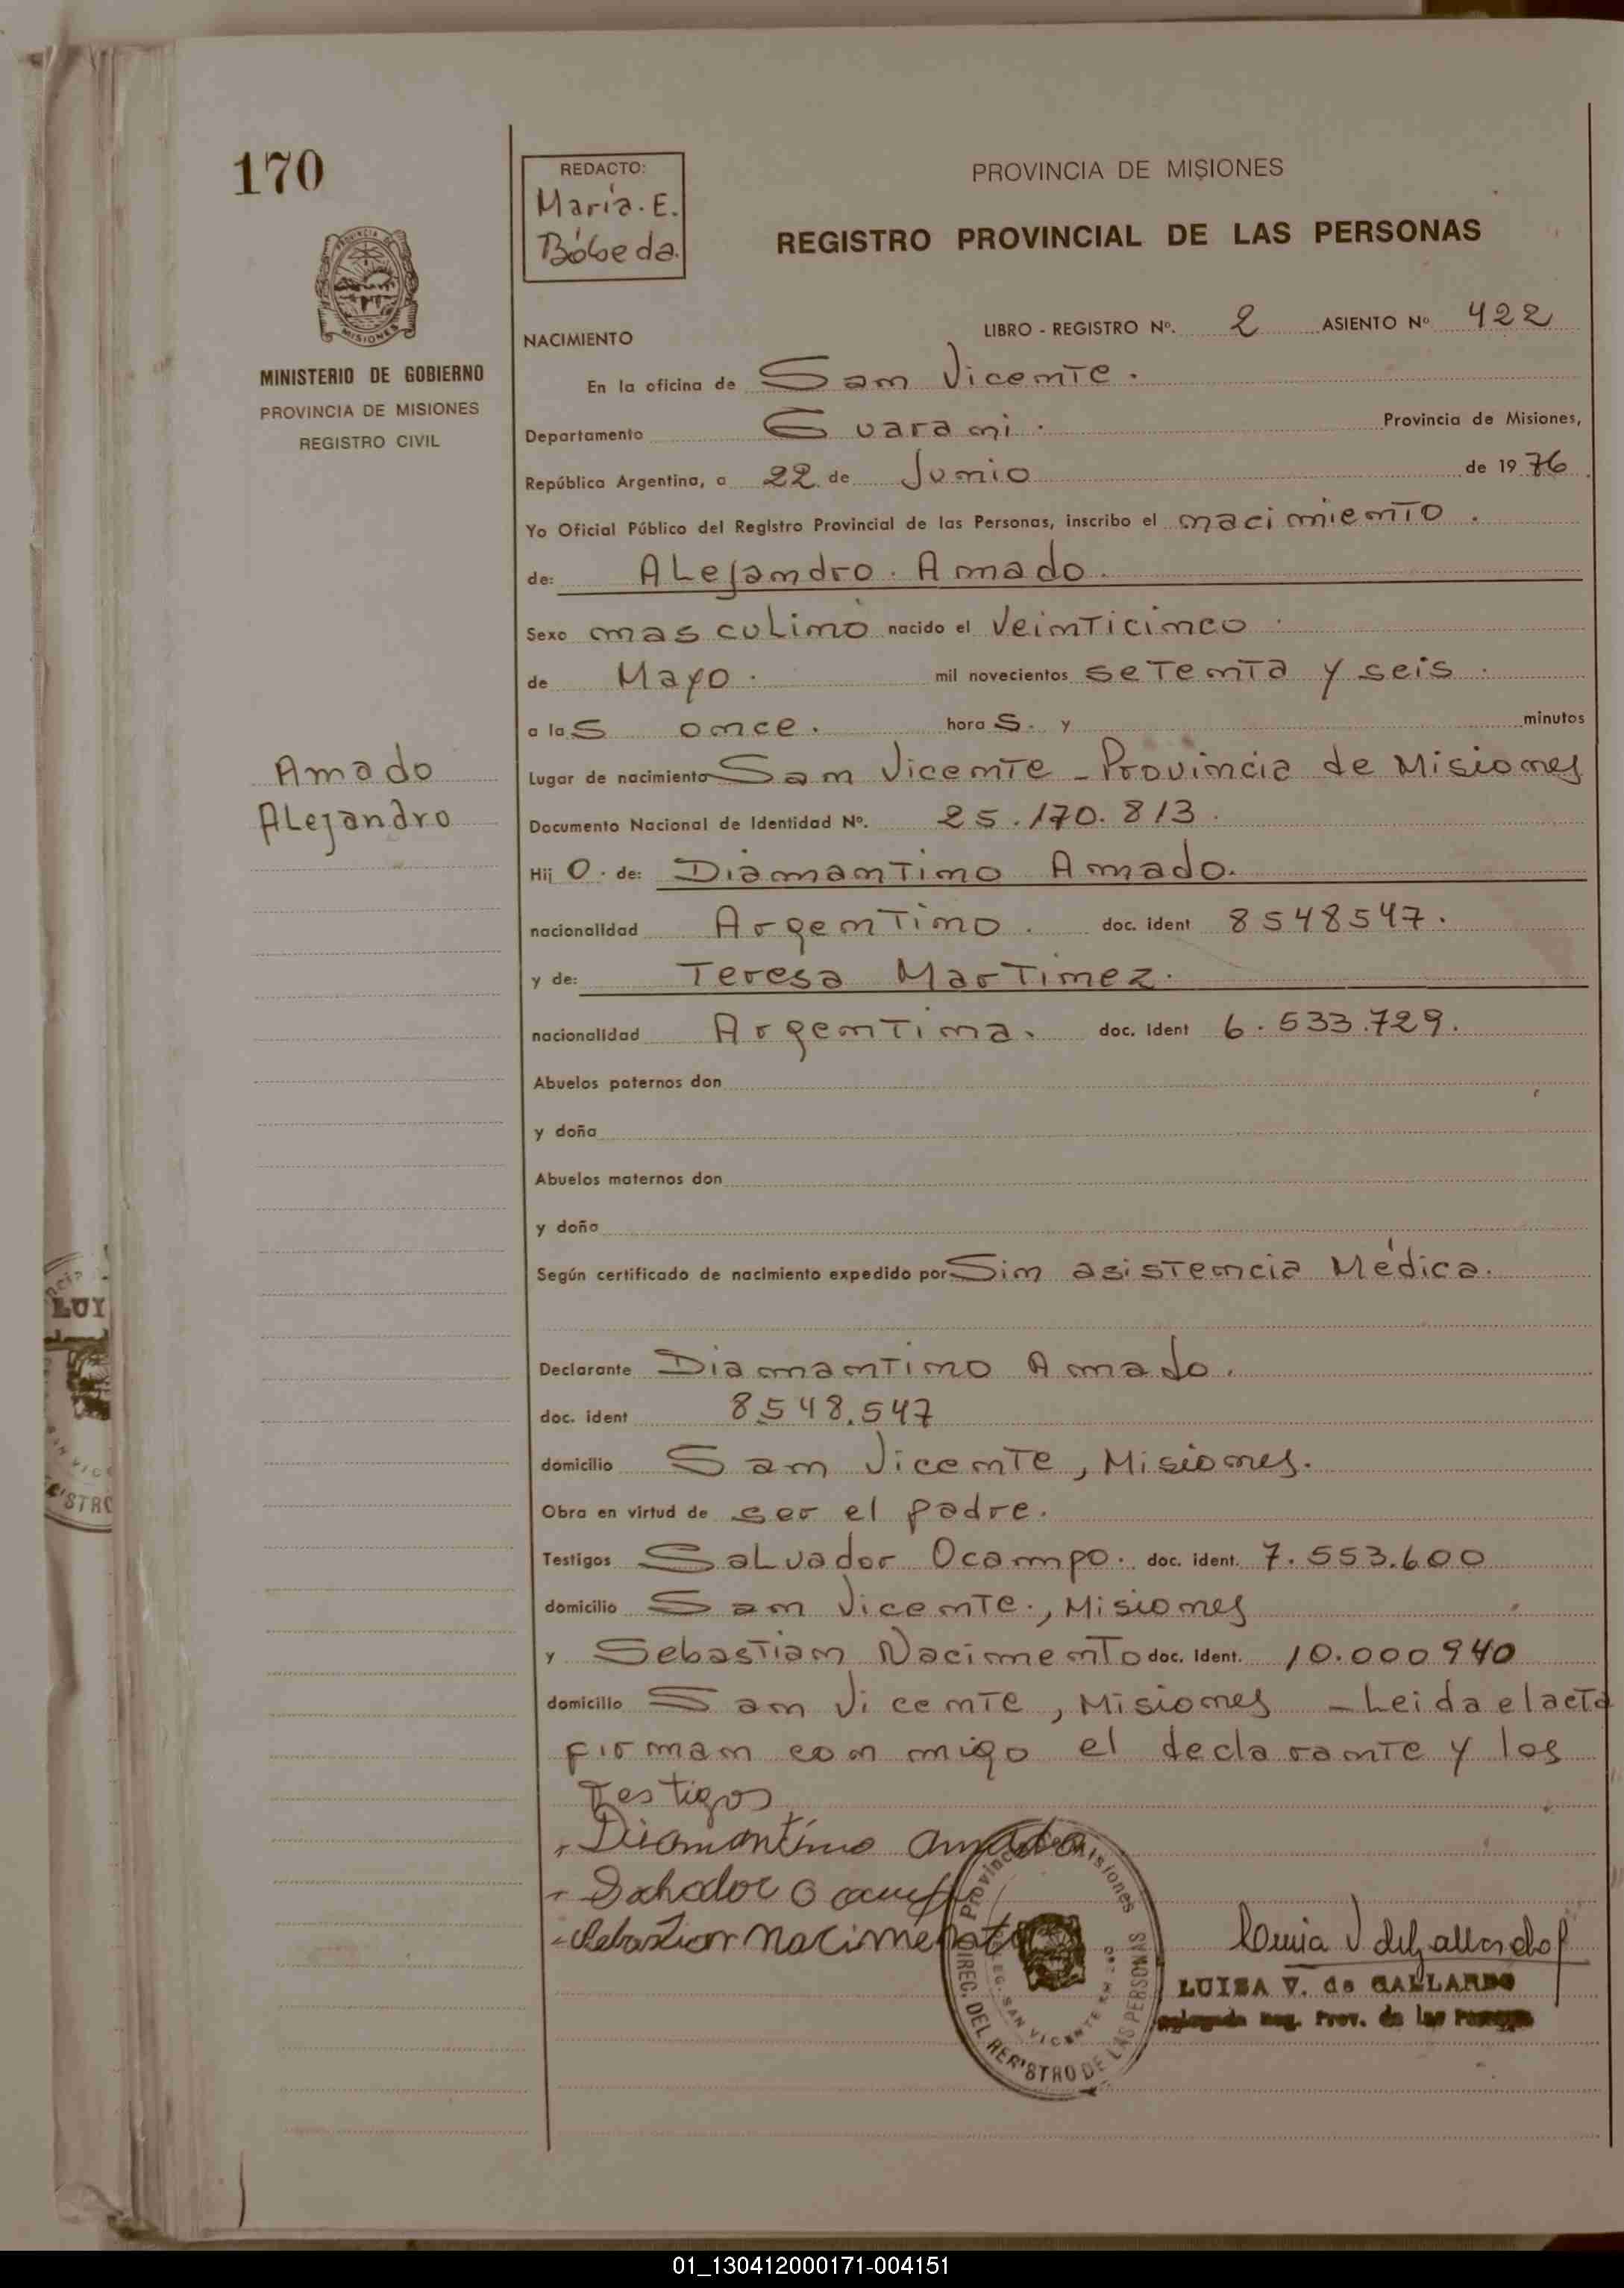 170
REDACTO:
María. E.
Bóbeda.
PROVINCIA DE MISIONES
REGISTRO PROVINCIAL DE LAS PERSONAS
MISIONES
MINISTERIO DE GOBIERNO
PROVINCIA DE MISIONES
REGISTRO CIVIL
NACIMIENTO
LIBRO - REGISTRO Nº. 2 ASIENTO Nº 422
En la oficina de San Vicente.
Departamento Guarani. Provincia de Misiones,
República Argentina, a 22 de Junio de 1976
Yo Oficial Público del Registro Provincial de las Personas, inscribo el nacimiento.
de: Alejandro. Amado.
Sexo masculino nacido el Veinticinco.
de Mayo. mil novecientos setenta y seis.
a las once. horas. y minutos
Amado
Alejandro
Lugar de nacimiento San Vicente - Provincia de Misiones
Documento Nacional de Identidad Nº. 25.170.813.
Hijo. de: Diamantino Amado.
nacionalidad Argentino. doc. ident 8548547.
y de: Teresa Martinez.
nacionalidad Argentina. doc. ident 6.533.729.
Abuelos paternos don
y doña
Abuelos maternos don
y doña
Según certificado de nacimiento expedido por Sin asistencia Médica.
Declarante Diamantino Amado.
doc. ident 8548.547
domicilio San Vicente, Misiones.
Obra en virtud de ser el padre.
Testigos Salvador Ocampo. doc. ident. 7.553.600
domicilio San Vicente., Misiones
y Sebastian Nacimento doc. ident. 10.000940
domicilio San Vicente, Misiones - Leida el acta
firman con migo el declarante y los
Testigos
Diamantino amado
Salvador Ocampo
Sebastian nacimento
Provincia de Misiones
DIREC. DEL REGISTRO DE LAS PERSONAS
SAN VICENTE
Luisa V de Gallardo
LUISA V. de GALLARDO
Delegada Reg. Prov. de las Personas
LUI
STRO
01_130412000171-004151